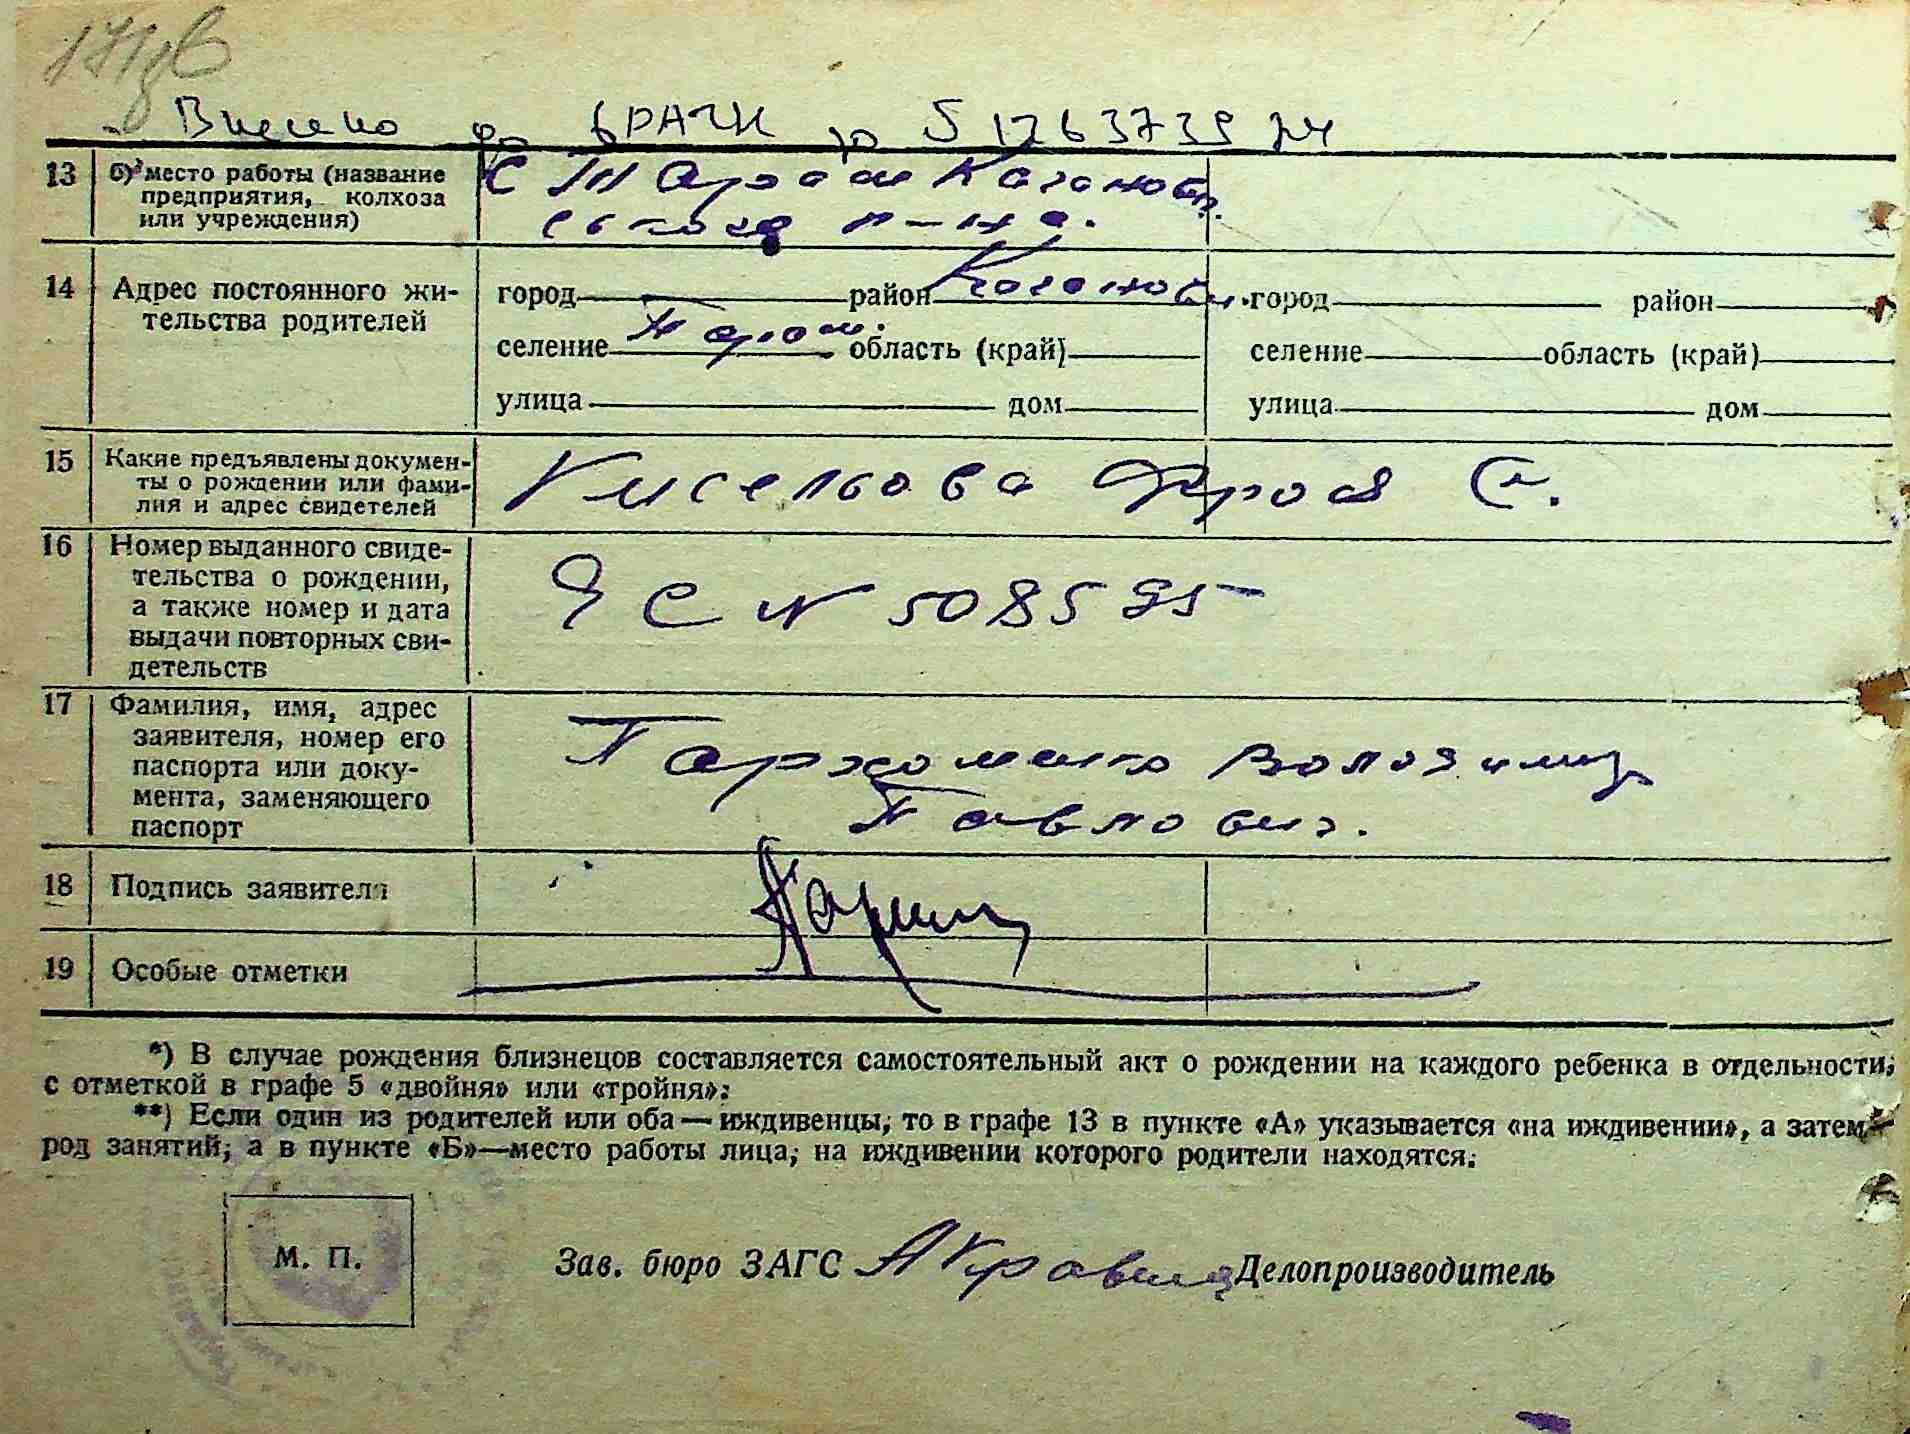 Внесено до ДРАЦГ
13 б) место работы (название
предприятия, колхоза
или учреждения)
14 Адрес постоянного жи-
тельства родителей
город район город район
селение область (край) селение область (край)
улица дом улица дом
15 Какие предъявлены докумен-
ты о рождении или фами-
лия и адрес свидетелей
Кисельова
16 Номер выданного свиде-
тельства о рождении,
а также номер и дата
выдачи повторных сви-
детельств
ЯС № 508595
17 Фамилия, имя, адрес
заявителя, номер его
паспорта или доку-
мента, заменяющего
паспорт
Пархоменко Володимир
Павлович.
18 Подпись заявителя
19 Особые отметки
*) В случае рождения близнецов составляется самостоятельный акт о рождении на каждого ребенка в отдельности,
с отметкой в графе 5 «двойня» или «тройня»:
**) Если один из родителей или оба — иждивенцы, то в графе 13 в пункте «А» указывается «на иждивении», а затем
род занятий, а в пункте «Б»—место работы лица, на иждивении которого родители находятся.
М. П.
Зав. бюро ЗАГС Делопроизводитель